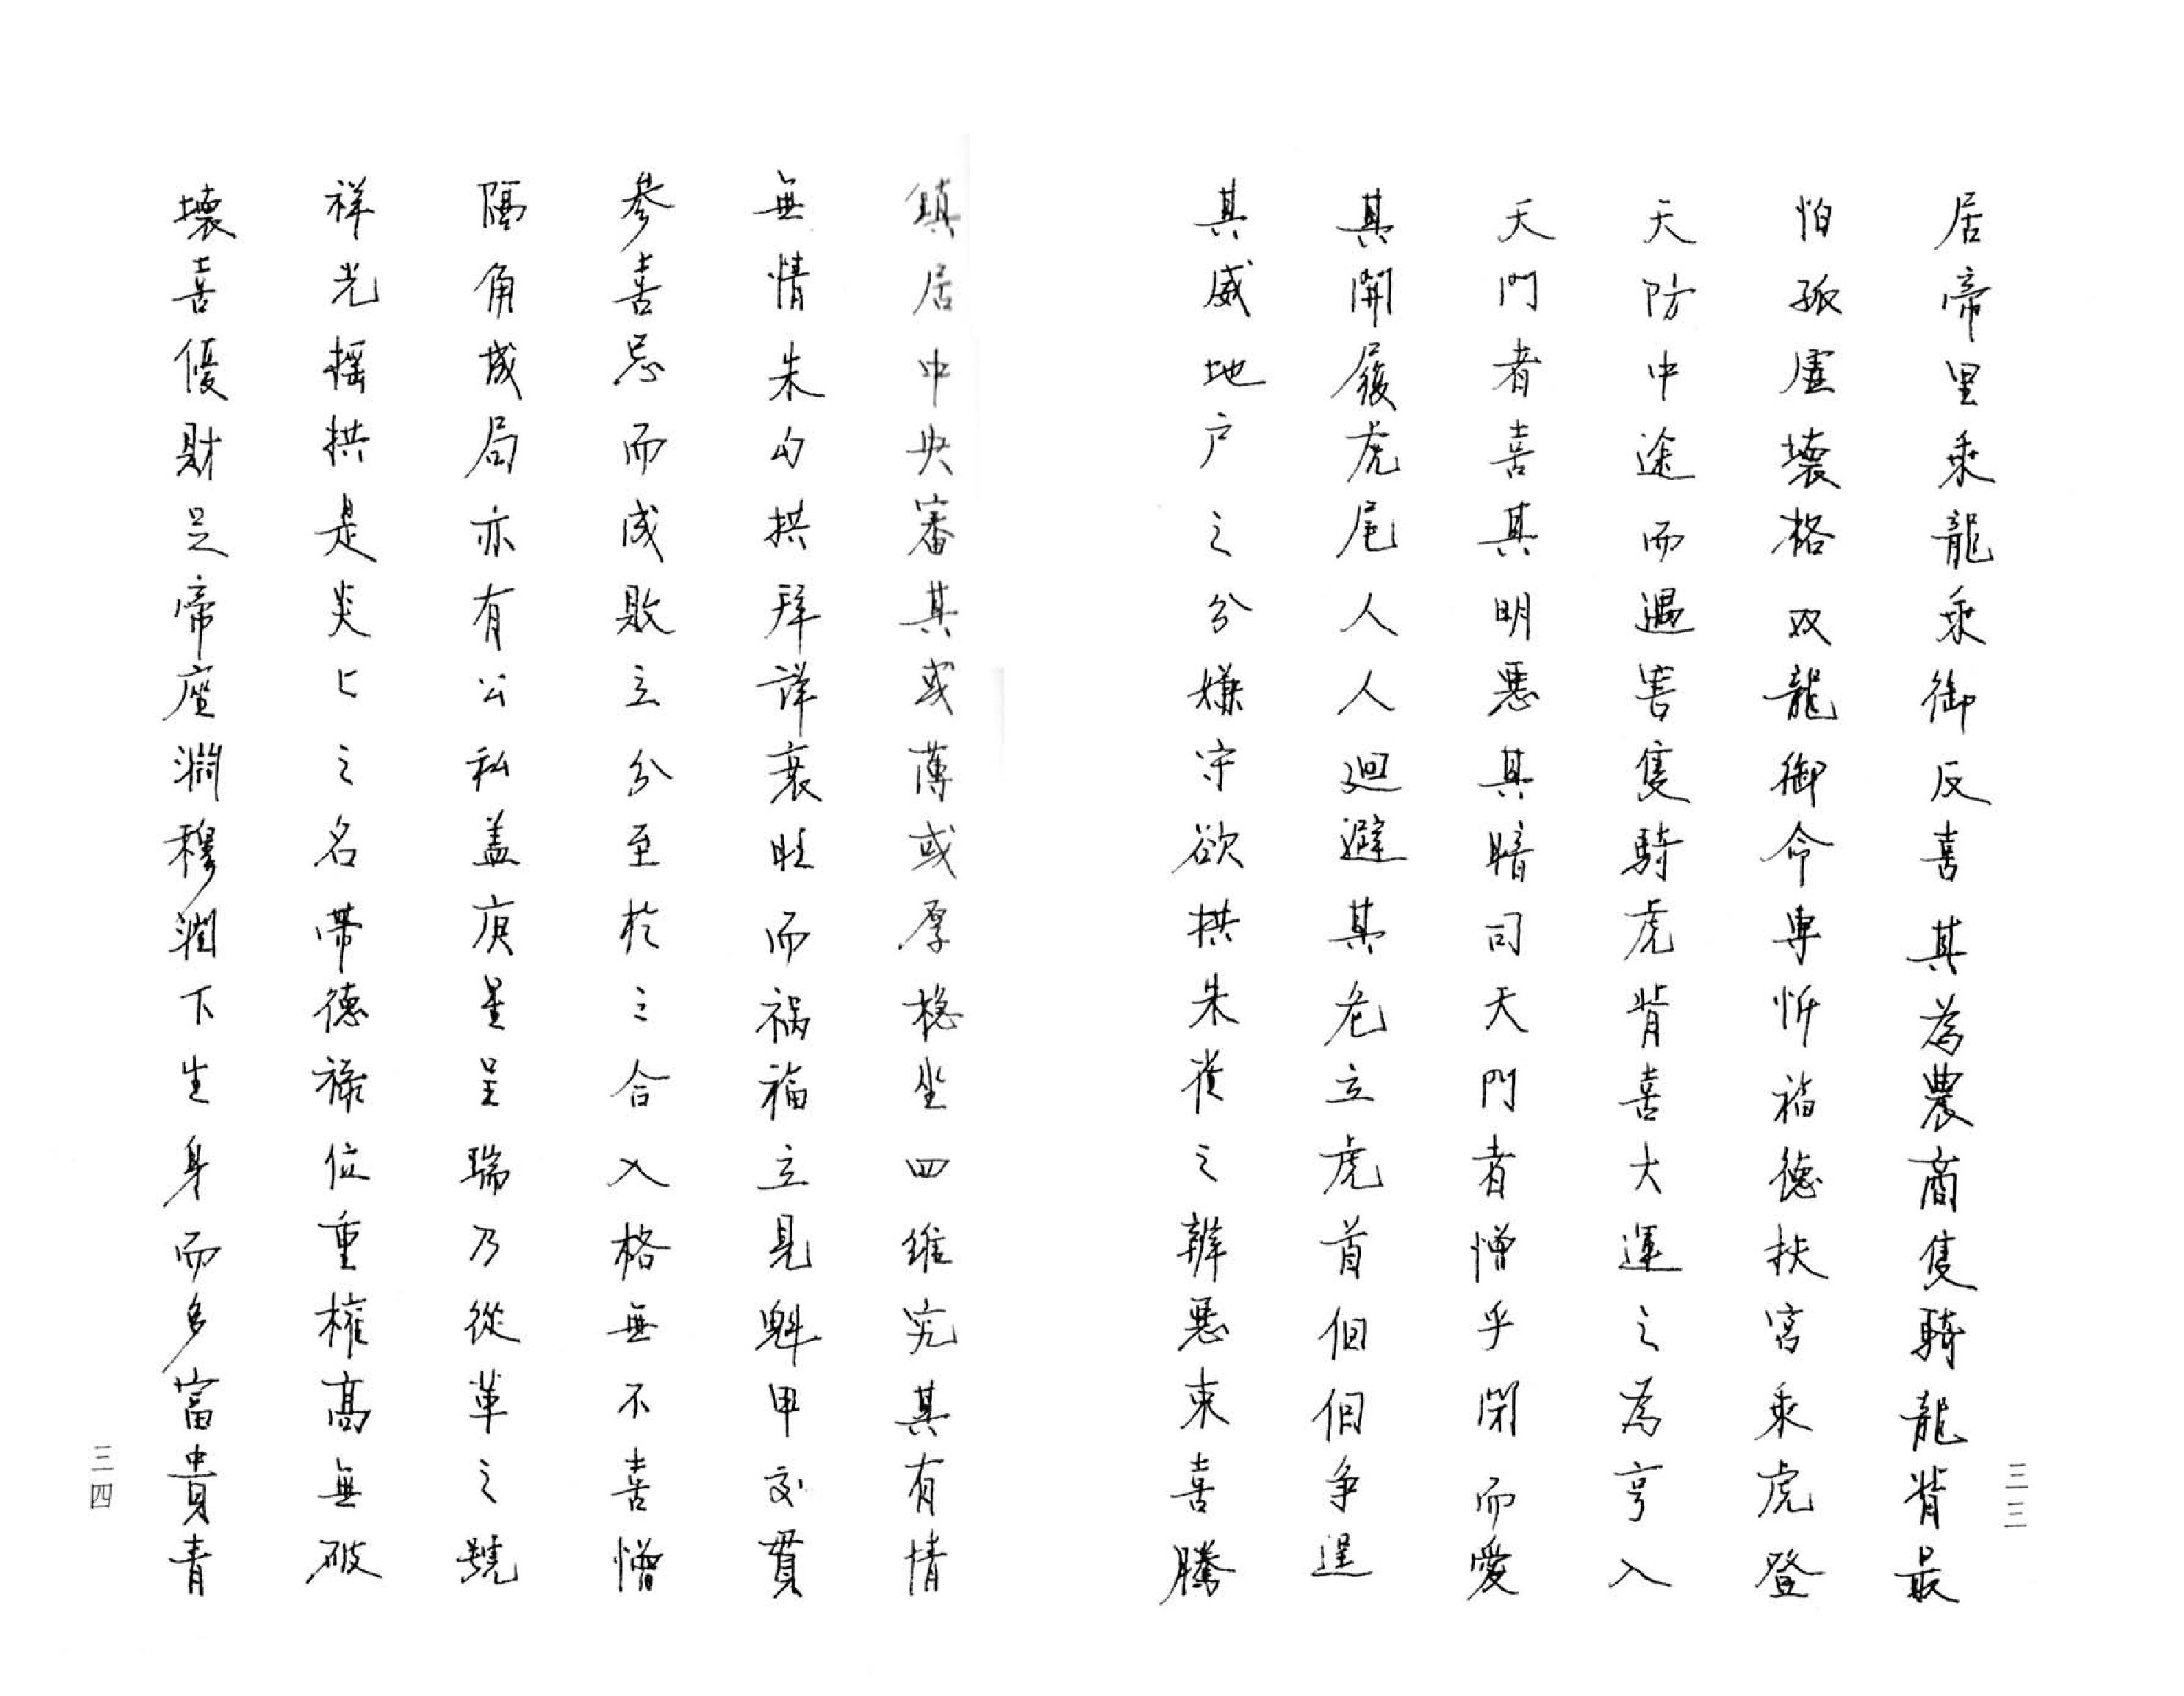 居帝里乘龍乘御反喜其為農商隻騎龍背最
怕孤虛壞格双龍御命專忻福德扶宮乘虎登
天防中途而遇害隻騎虎背喜大運之為亨入
天門者喜其明惡其暗司天門者憎乎閉而愛
其開履虎尾人人廻避其危立虎首個個爭逞
其威地户之分嫌守欲拱朱雀之辨惡東喜騰
三三
鎮居中央審其或薄或厚穩坐四維究其有情
無情朱勾拱拜詳衰旺而禍福立見魁甲交貫
參喜忌而成敗立分至於之合入格無不喜憎
隔角成局亦有公私盖庚星呈瑞乃從革之號
祥光摇拱是炎匕之名帶德祿位重權高無破
壞喜優財足帝座澗穆潤下生身而多富貴青
三四